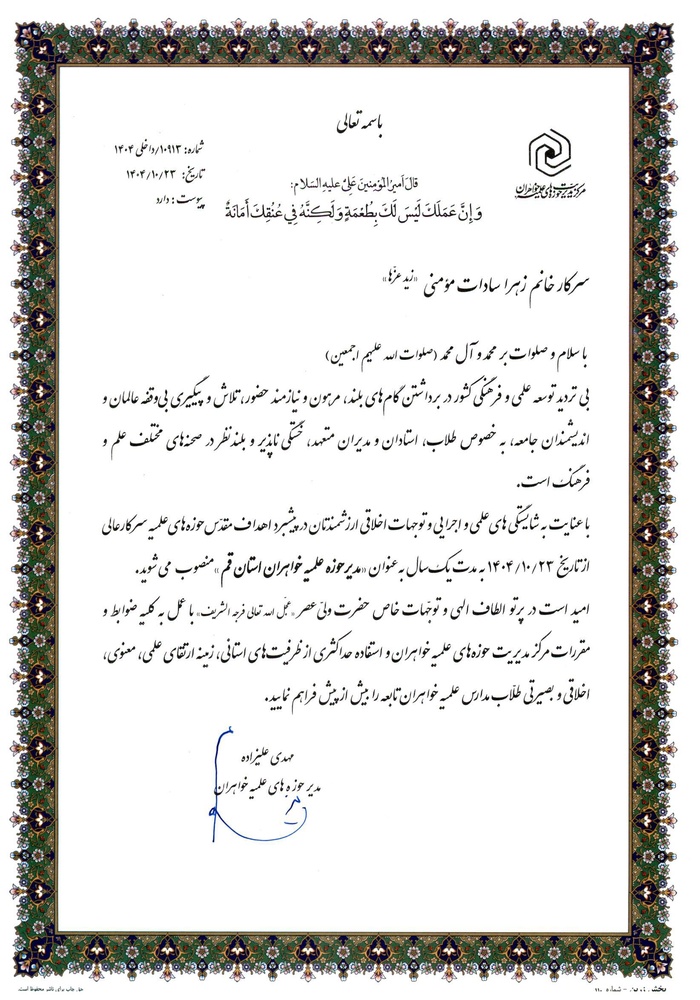 باسمه تعالی
شماره: ۱۰۹۱۳/داخلی/۱۴۰۴
تاریخ: ۱۴۰۴/۱۰/۲۳
پیوست: دارد
مرکز مدیریت حوزه‌های علمیه خواهران
قالَ اَمیرُ المُؤمِنینَ عَلِیٌّ علیهِ السَلام:
وَ إِنَّ عَمَلَكَ لَيْسَ لَكَ بِطُعْمَةٍ وَ لَكِنَّهُ فِي عُنُقِكَ أَمَانَةٌ
سرکار خانم زهرا سادات مؤمنی «زید عزّها»
با سلام و صلوات بر محمد و آل محمد (صلوات الله علیهم اجمعین)
بی تردید توسعه علمی و فرهنگی کشور در برداشتن گام‌های بلند، مرهون و نیازمند حضور، تلاش و پیگیری بی‌وقفه عالمان و
اندیشمندان جامعه، به خصوص طلاب، استادان و مدیران متعهد، خستگی ناپذیر و بلندنظر در صحنه‌های مختلف علم و
فرهنگ است.
با عنایت به شایستگی های علمی و اجرایی و توجهات اخلاقی ارزشمندتان در پیشبرد اهداف مقدّس حوزه های علمیه سرکارعالی
از تاریخ ۱۴۰۴/۱۰/۲۳ به مدت یک سال به عنوان «مدیر حوزه علمیه خواهران استان قم» منصوب می شوید.
امید است در پرتو الطاف الهی و توجّهات خاص حضرت ولیّ عصر «عجّل الله تعالی فرجه الشریف» با عمل به کلیه ضوابط و
مقررات مرکز مدیریت حوزه‌های علمیه خواهران و استفاده حداکثری از ظرفیت‌های استانی، زمینه ارتقای علمی، معنوی،
اخلاقی و بصیرتی طلّاب مدارس علمیه خواهران تابعه را بیش از پیش فراهم نمایید.
مهدی علیزاده
مدیر حوزه های علمیه خواهران
پخش زرین - شماره ۱۱۰
حق چاپ برای ناشر محفوظ است.